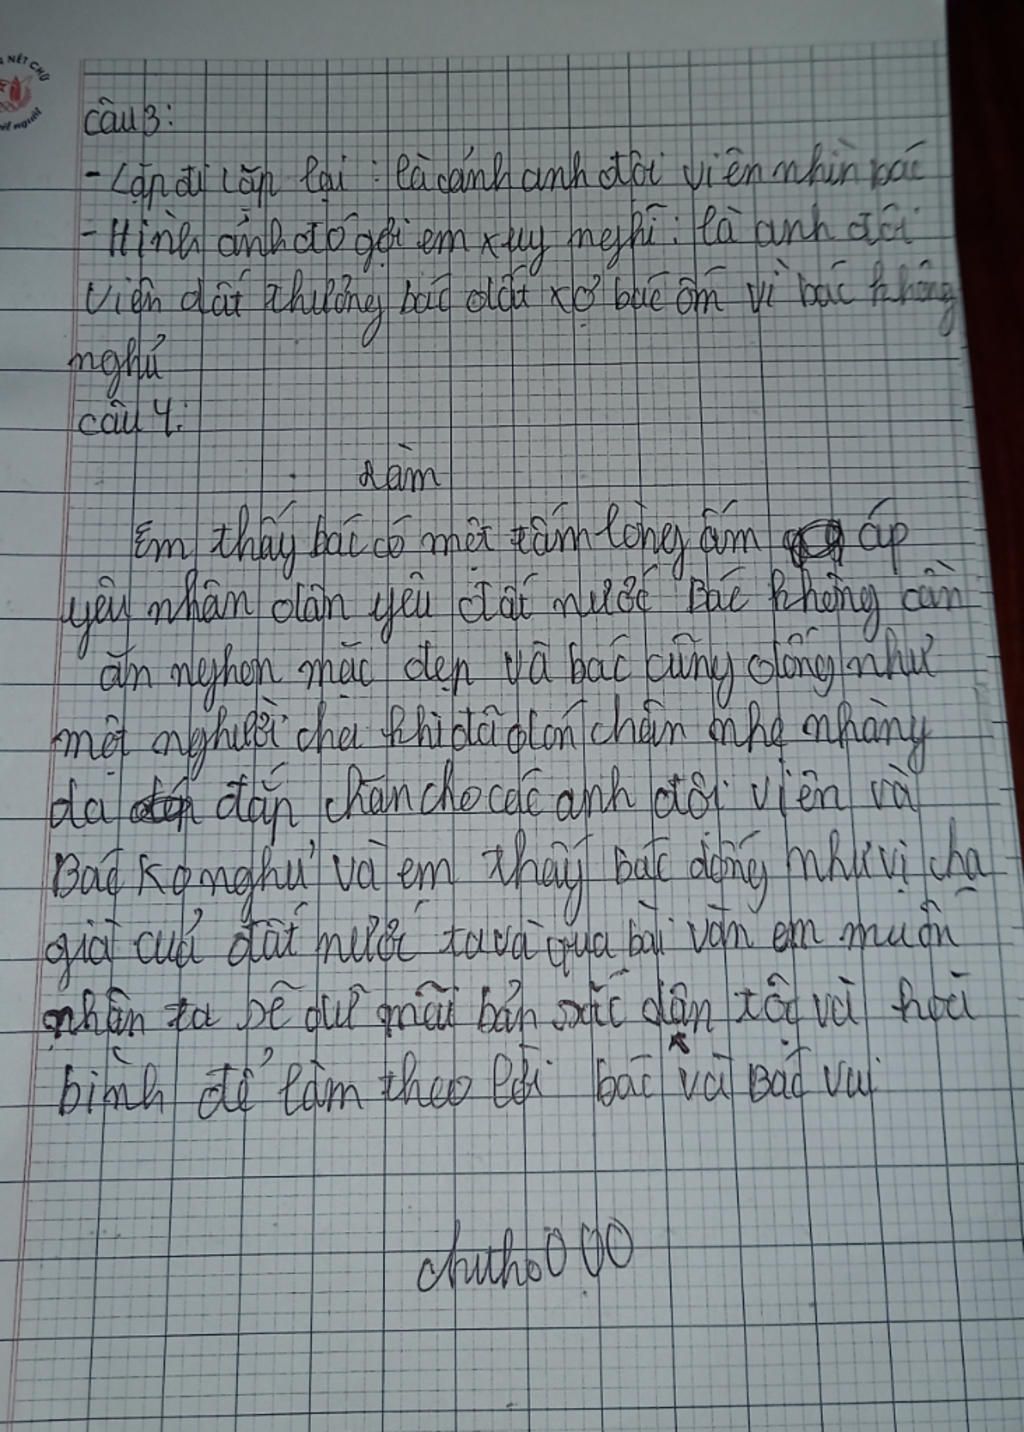 NÉT CHỮ
nết người
câu 3:
- Lặp đi lặp lại : là cảnh anh đội viên nhìn bác
- Hình ảnh đó gợi em xuy nghĩ : là anh đội
viên dất thương bác dất xợ bác ốm vì bác không
nghủ
câu 4:
Làm
Em thấy bác có một tấm lòng ấm áp
yêu nhân dân yêu đất nước Bác không cần
ăn nghon mặc đẹp và bác cũng dống như
một nghười cha khi đã chân nhẹ nhàng
da đắp chăn cho các anh đội viên và
Bác Ko nghủ và em thấy Bác dống như vị cha
già cuả đất nước ta và qua bài văn em muốn
nhân ta sẽ dữ mãi bản sắc dân tộc và hoà
bình để làm theo lời bác và Bác vui